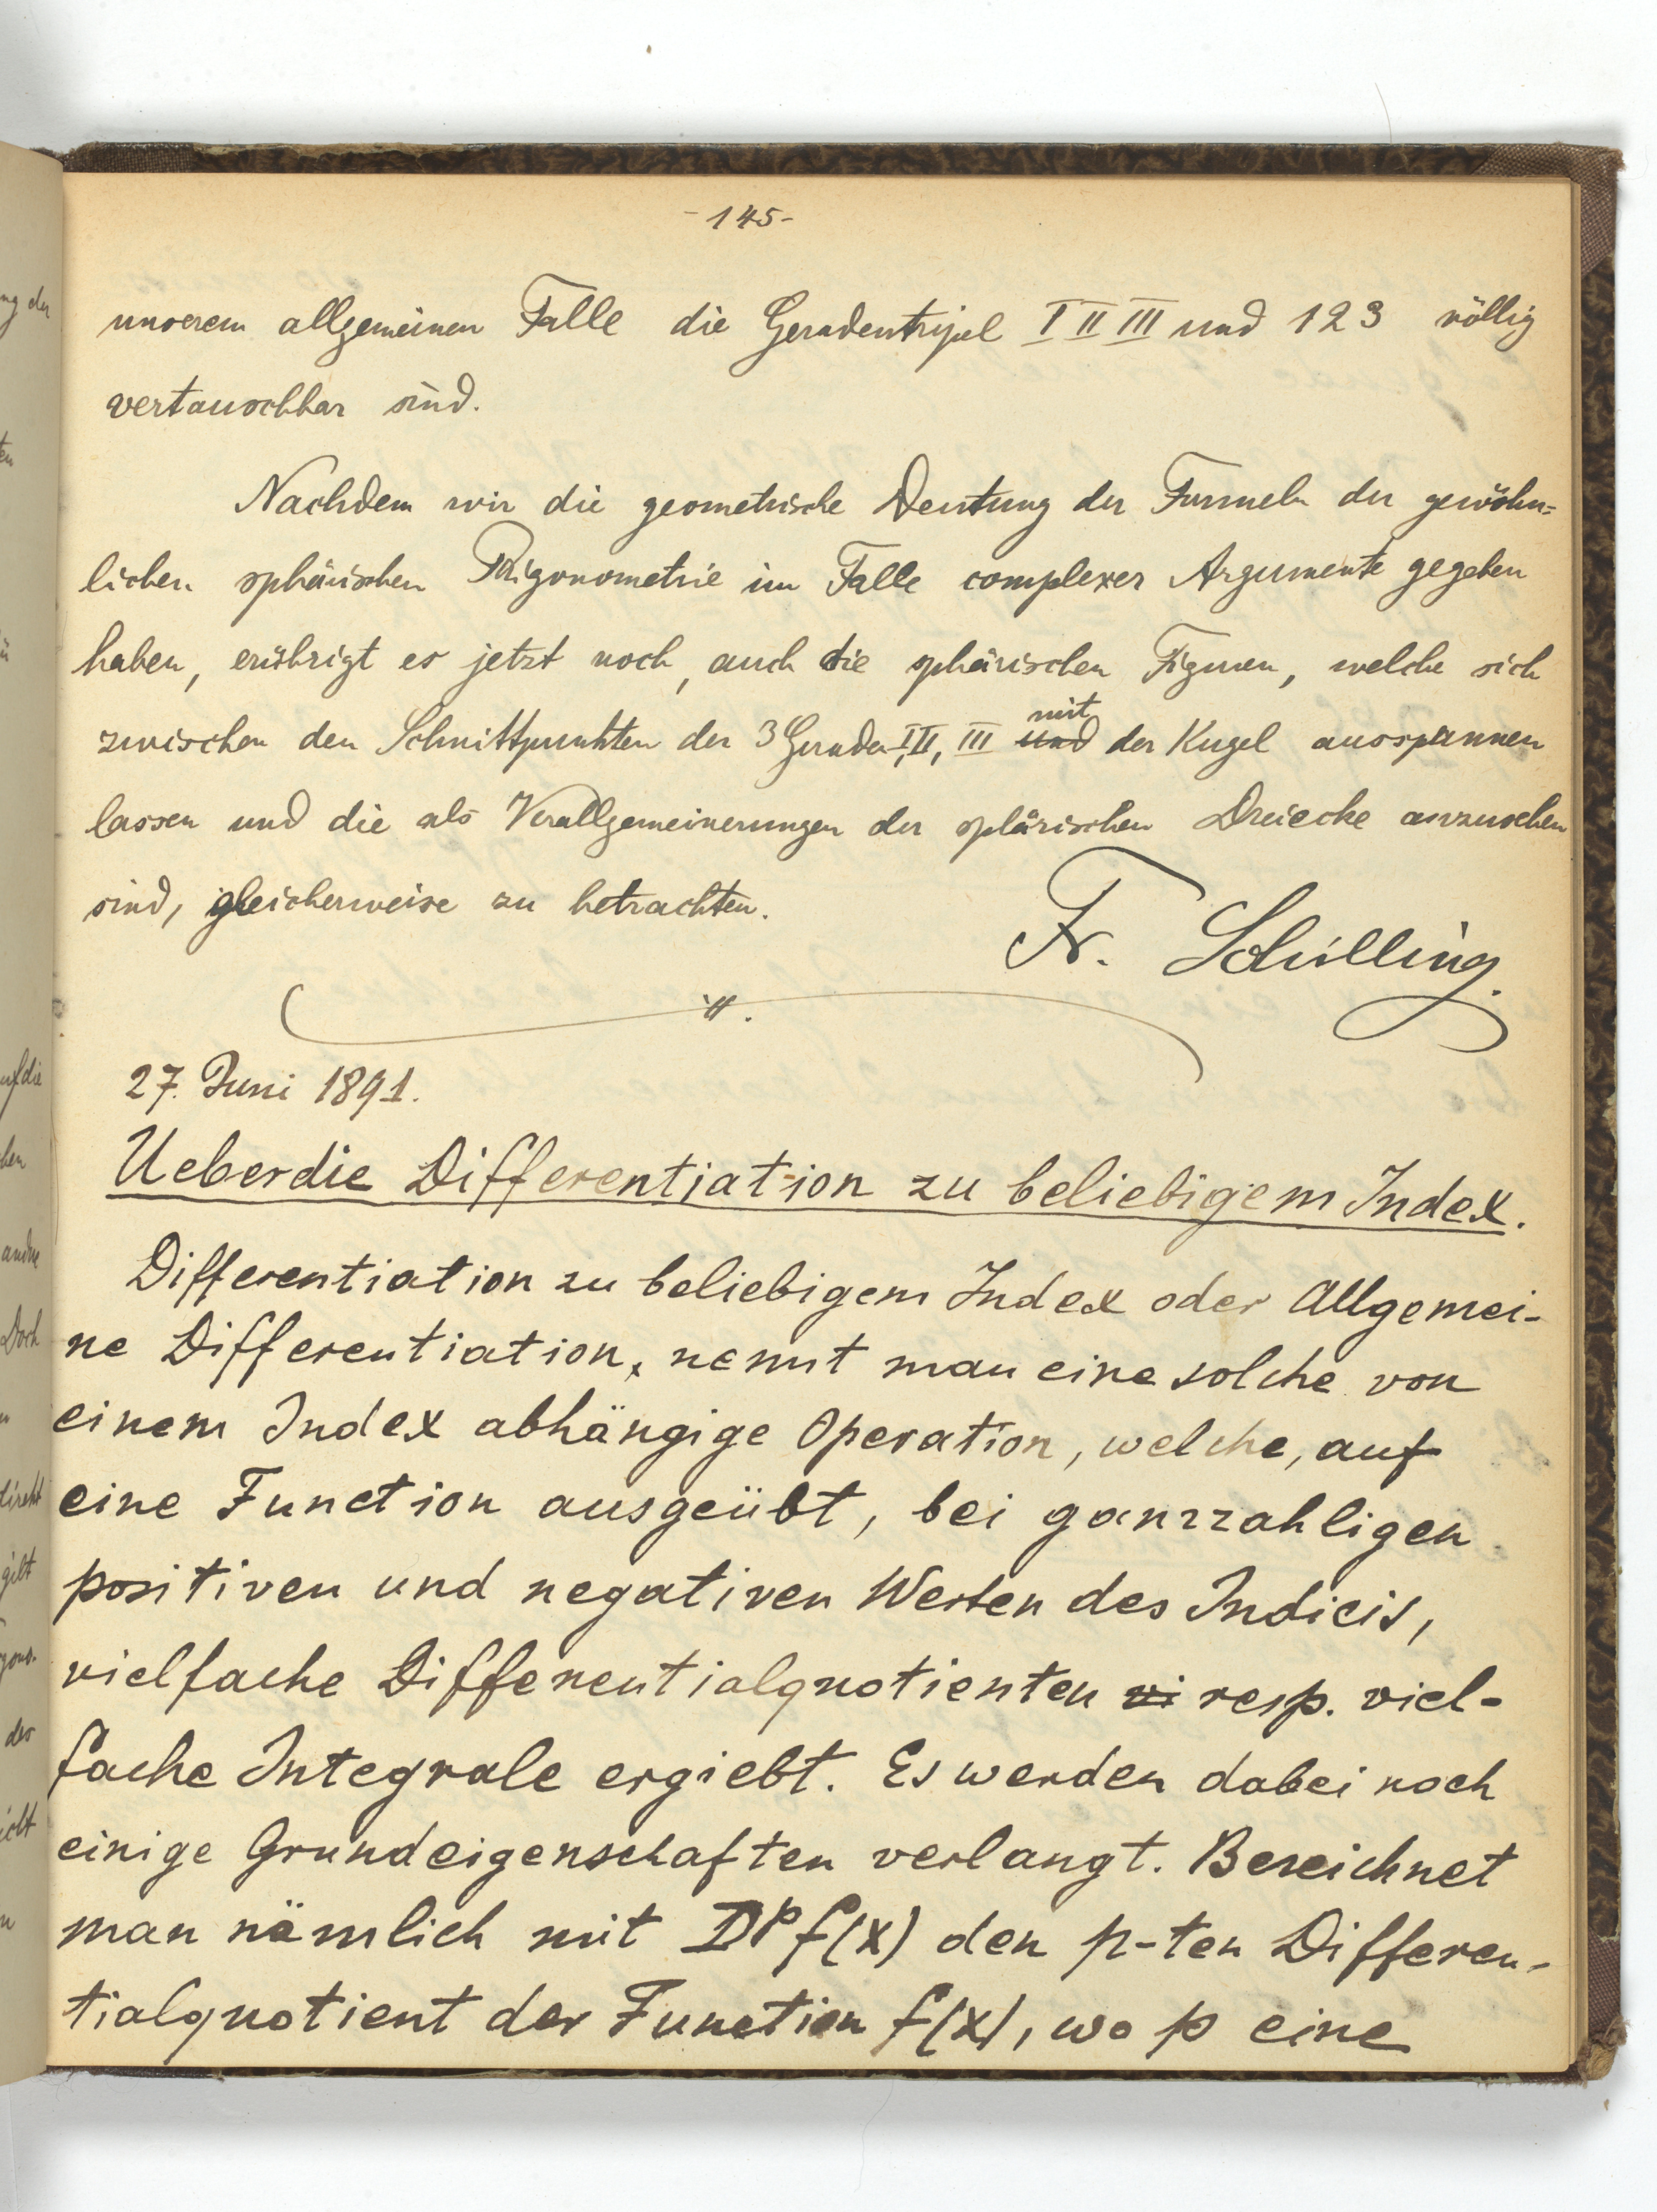 - 145 -
unserem allgemeinen Falle die Geradentripel I II III und 1 2 3 völlig
vertauschbar sind.
Nachdem wir die geometrische Deutung der Formeln der gewöhn=
lichen sphärischen Trigonometrie im Falle complexer Argumente gegeben
haben, erübrigt es jetzt noch, auch die sphärischen Figuren, welche sich
zwischen den Schnittpunkten der 3 Geraden I, II, III und mit der Kugel ausspannen
lassen und die als Verallgemeinerungen der sphärischen Dreiecke anzusehen
sind, gleicherweise zu betrachten.
Fr. Schilling.
27. Juni 1891.
Ueber die Differentiation zu beliebigem Index.
Differentiation zu beliebigem Index oder Allgemei-
ne Differentiation, nennt man eine solche von
einem Index abhängige Operation, welche, auf
eine Function ausgeübt, bei ganzzahligen
positiven und negativen Werten des Indicis,
vielfache Differentialquotienten vi resp. viel-
fache Integrale ergiebt. Es werden dabei noch
einige Grundeigenschaften verlangt. Bezeichnet
man nämlich mit D^p f(x) den p-ten Differen-
tialquotient der Function f(x), wo p eine